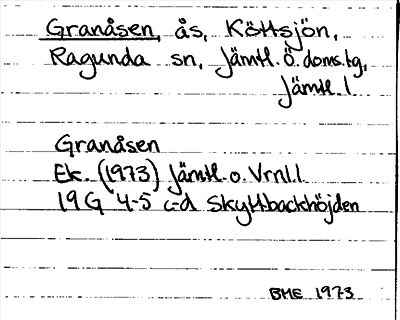 Granåsen, ås, Köttsjön,
Ragunda sn, Jämtl. Ö. doms.tg,
Jämtl. l.
Granåsen
Ek. (1973) Jämtl. o. Vrnl.l
19G 4-5 c-d Skyttbackhöjden
BME 1973